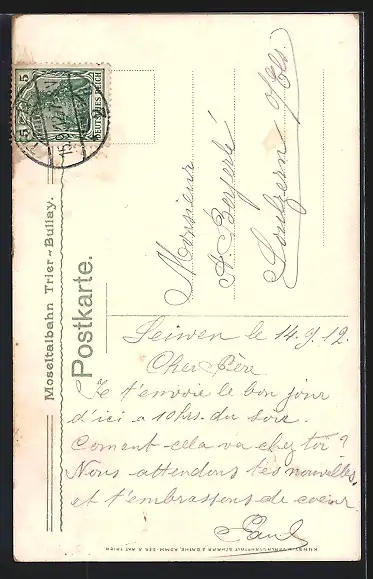 Moseltalbahn Trier-Bullay.
Postkarte.
5 5
DEUTSCHES REICH
15.9.12
Monsieur
A.
s/Els.
Leiwen le 14.9.12.
Cher Père
Je t'envoie le bon jour
d'ici a 10 hrs. du soir.
Coment cela va chez toi?
Nous attendons tes nouvelles
et t'embrassons de coeur
Paul